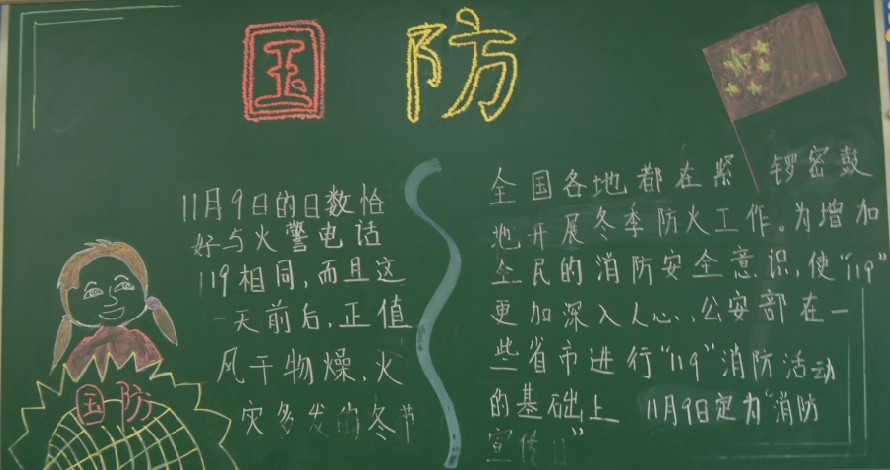 国防
11月9日的日数恰
好与火警电话
119相同,而且这
一天前后,正值
风干物燥,火
灾多发的冬节
国防
全国各地都在紧 锣密鼓
地开展冬季防火工作。为增加
全民的消防安全意识,使"119"
更加深入人心,公安部在一
些省市进行"119"消防活动
的基础上 11月9日定为"消防
宣传日"